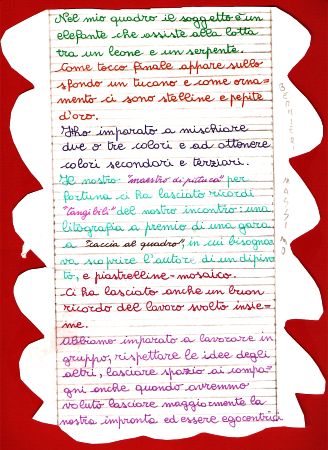 Nel mio quadro il soggetto è un
elefante che assiste alla lotta
tra un leone e un serpente.
Come tocco finale appare sullo
sfondo un tucano e come orna-
mento ci sono stelline e pepite
d'oro.
Ho imparato a mischiare
due o tre colori e ad ottenere
colori secondari e terziari.
Il nostro "maestro di pittura" per
fortuna ci ha lasciato ricordi
"tangibili" del nostro incontro: una
litografia a premio di una gara
a "caccia al quadro", in cui bisogna
va scoprire l'autore di un dipin
to, e piastrelline-mosaico.
Ci ha lasciato anche un buon
ricordo del lavoro svolto insie-
me.
Abbiamo imparato a lavorare in
gruppo, rispettare le idee degli
altri, lasciare spazio ai compa-
gni anche quando avremmo
voluto lasciare maggiormente la
nostra impronta ed essere egocentrici
MASSIMO